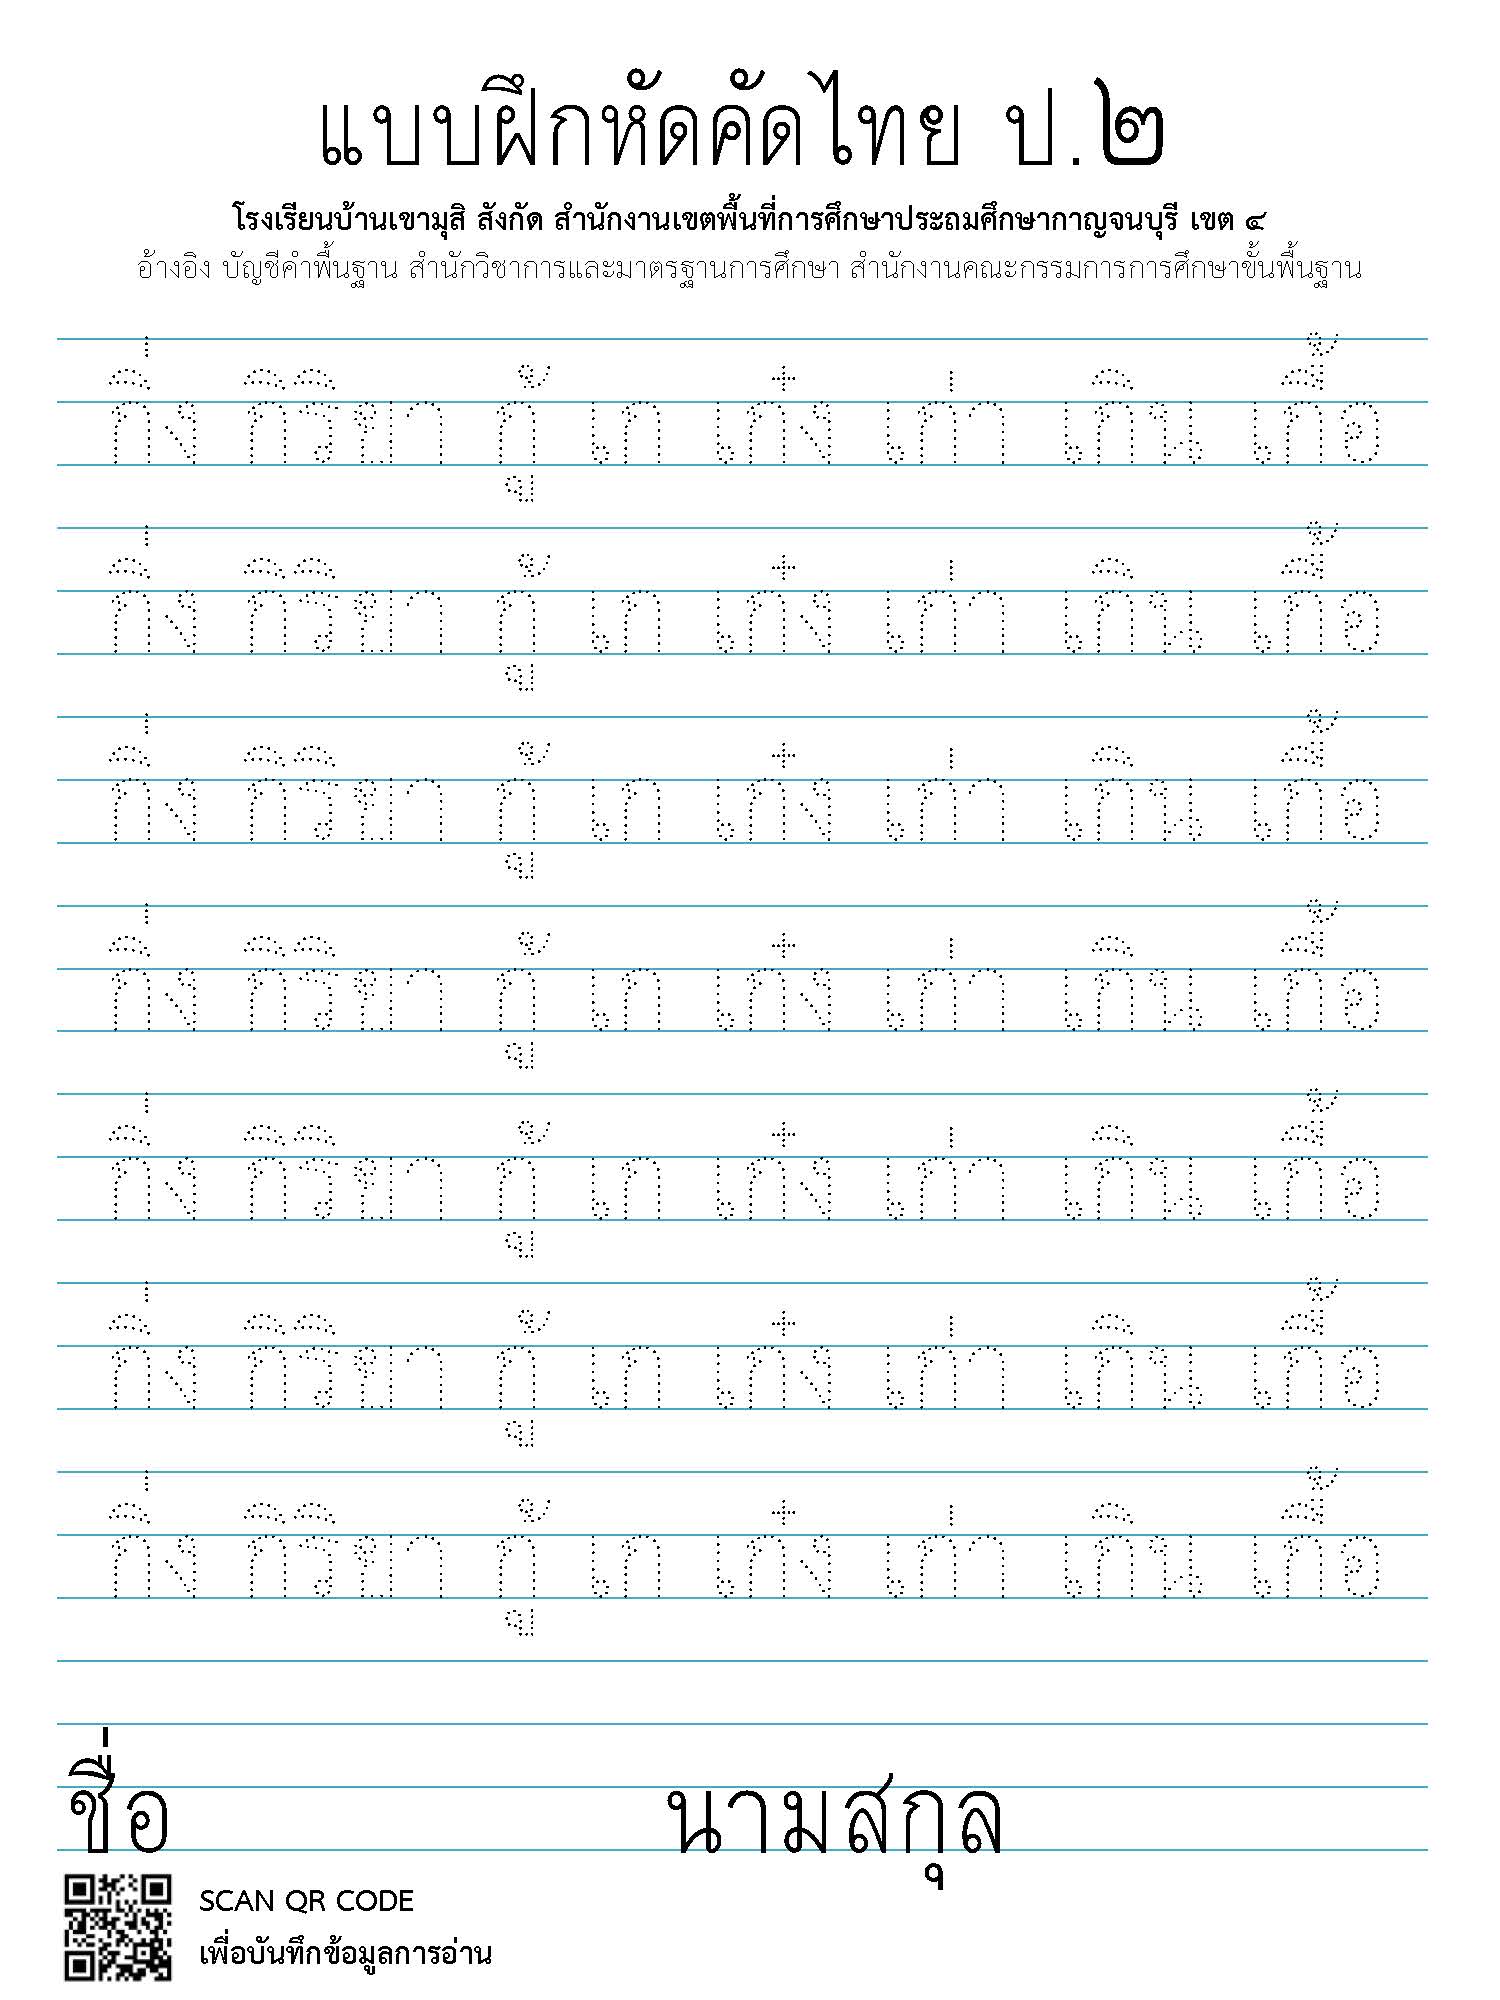 แบบฝึกหัดคัดไทย ป.๒
โรงเรียนบ้านเขามุสิ สังกัด สำนักงานเขตพื้นที่การศึกษาประถมศึกษากาญจนบุรี เขต ๔
อ้างอิง บัญชีคำพื้นฐาน สำนักวิชาการและมาตรฐานการศึกษา สำนักงานคณะกรรมการการศึกษาขั้นพื้นฐาน
กิ่ง กิริยา กู้ เก เก๋ง เก่า เกิน เกื้อ
กิ่ง กิริยา กู้ เก เก๋ง เก่า เกิน เกื้อ
กิ่ง กิริยา กู้ เก เก๋ง เก่า เกิน เกื้อ
กิ่ง กิริยา กู้ เก เก๋ง เก่า เกิน เกื้อ
กิ่ง กิริยา กู้ เก เก๋ง เก่า เกิน เกื้อ
กิ่ง กิริยา กู้ เก เก๋ง เก่า เกิน เกื้อ
กิ่ง กิริยา กู้ เก เก๋ง เก่า เกิน เกื้อ
ชื่อ นามสกุล
SCAN QR CODE
เพื่อบันทึกข้อมูลการอ่าน